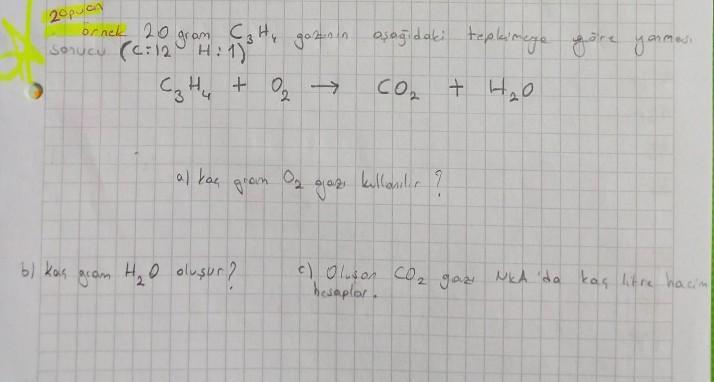 20puan
örnek 20 gram C₃H₄ gazının aşağıdaki tepkimeye göre yanması
sonucu (C:12 H:1)
C₃H₄ + O₂ → CO₂ + H₂O
a) kaç gram O₂ gazı kullanılır?
b) kaç gram H₂O oluşur? c) Oluşan CO₂ gazı NKA'da kaç litre hacim
hesaplar.